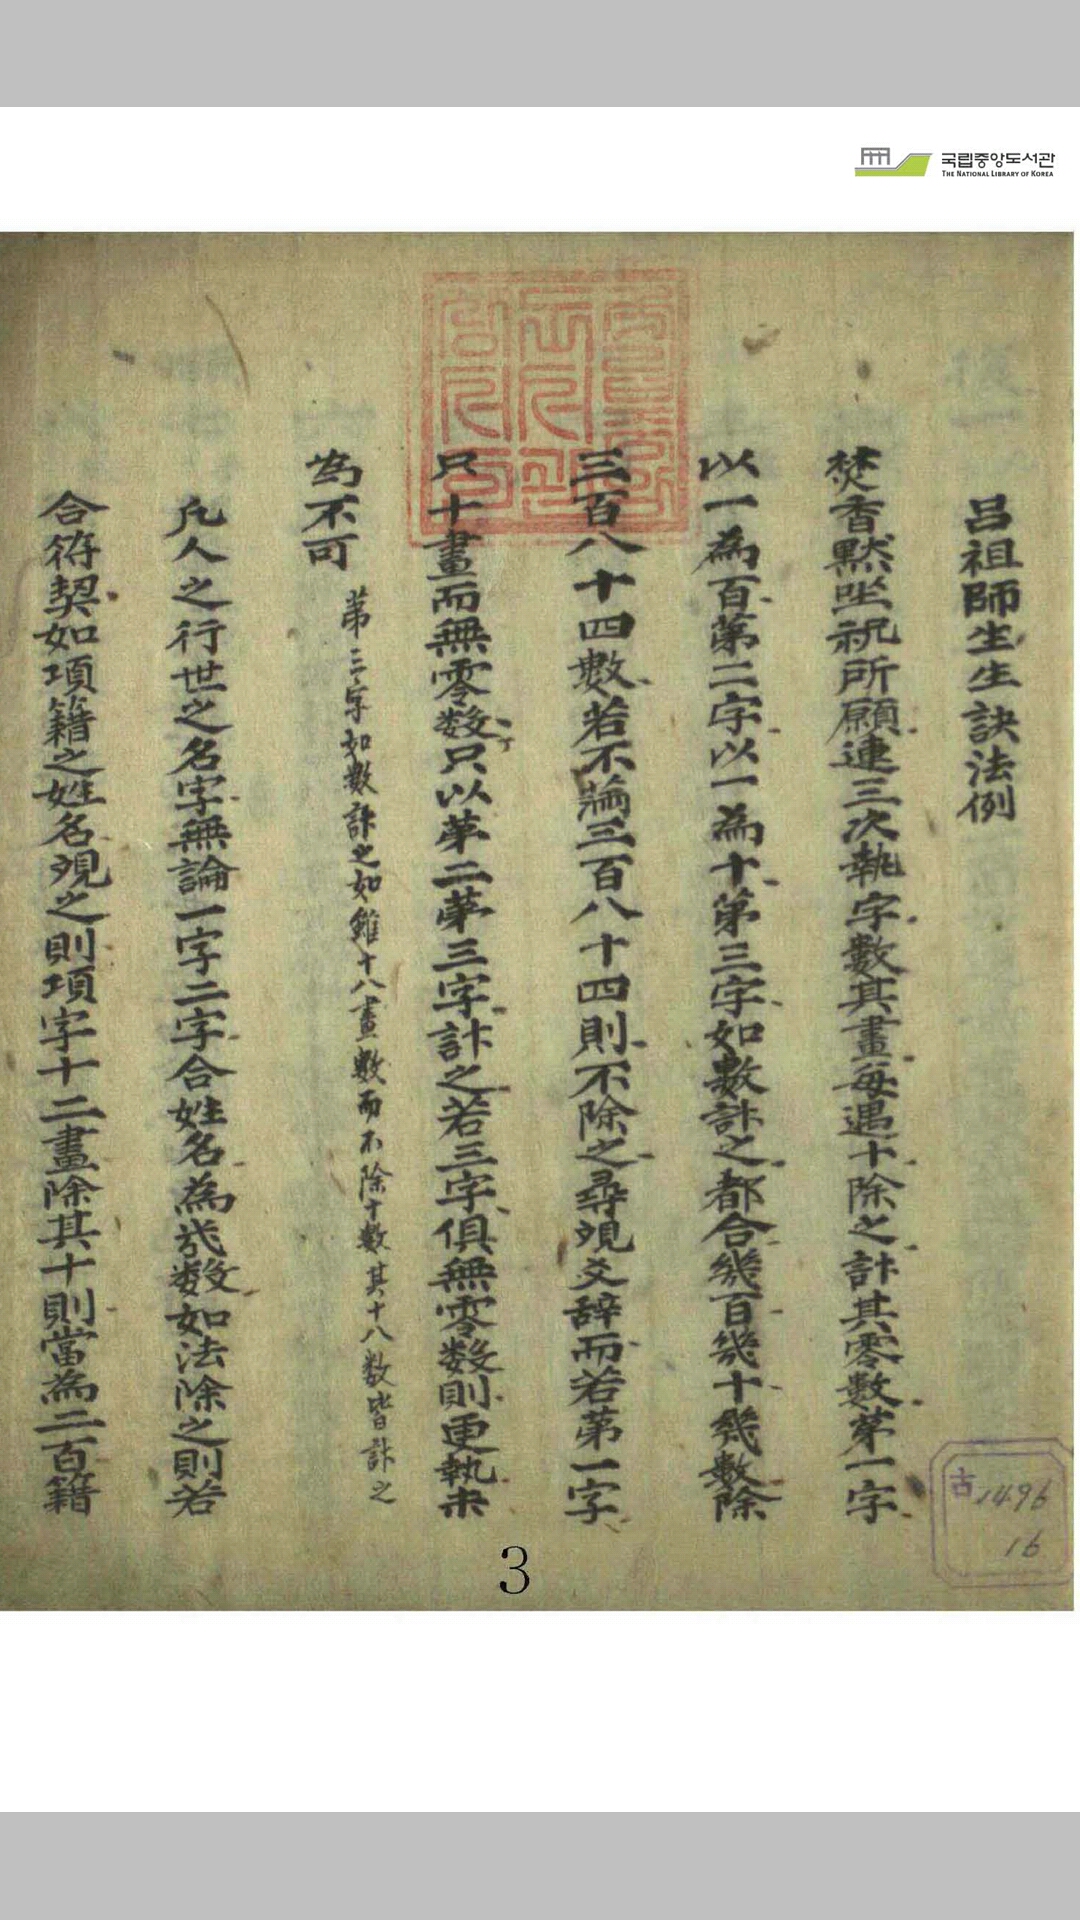 국립중앙도서관
THE NATIONAL LIBRARY OF KOREA
呂祖師生生訣法例
焚香黙坐祝所願連三次執字數其畫每遇十除之計其零數第一字
以一為百第二字以一為十第三字如數計之都合幾百幾十幾數除
三百八十四數若不滿三百八十四則不除之尋覌爻辞而若第一字
只十畫而無零数只以第二第三字計之若三字俱無零数則更執未
為不可
第三字如數計之如雖十八畫數而不除十數其十八数皆計之
凡人之行世之名字無論一字二字合姓名為幾数如法除之則若
合符契如項籍之姓名覌之則項字十二畫除其十則當為二百籍
古1496
16
3